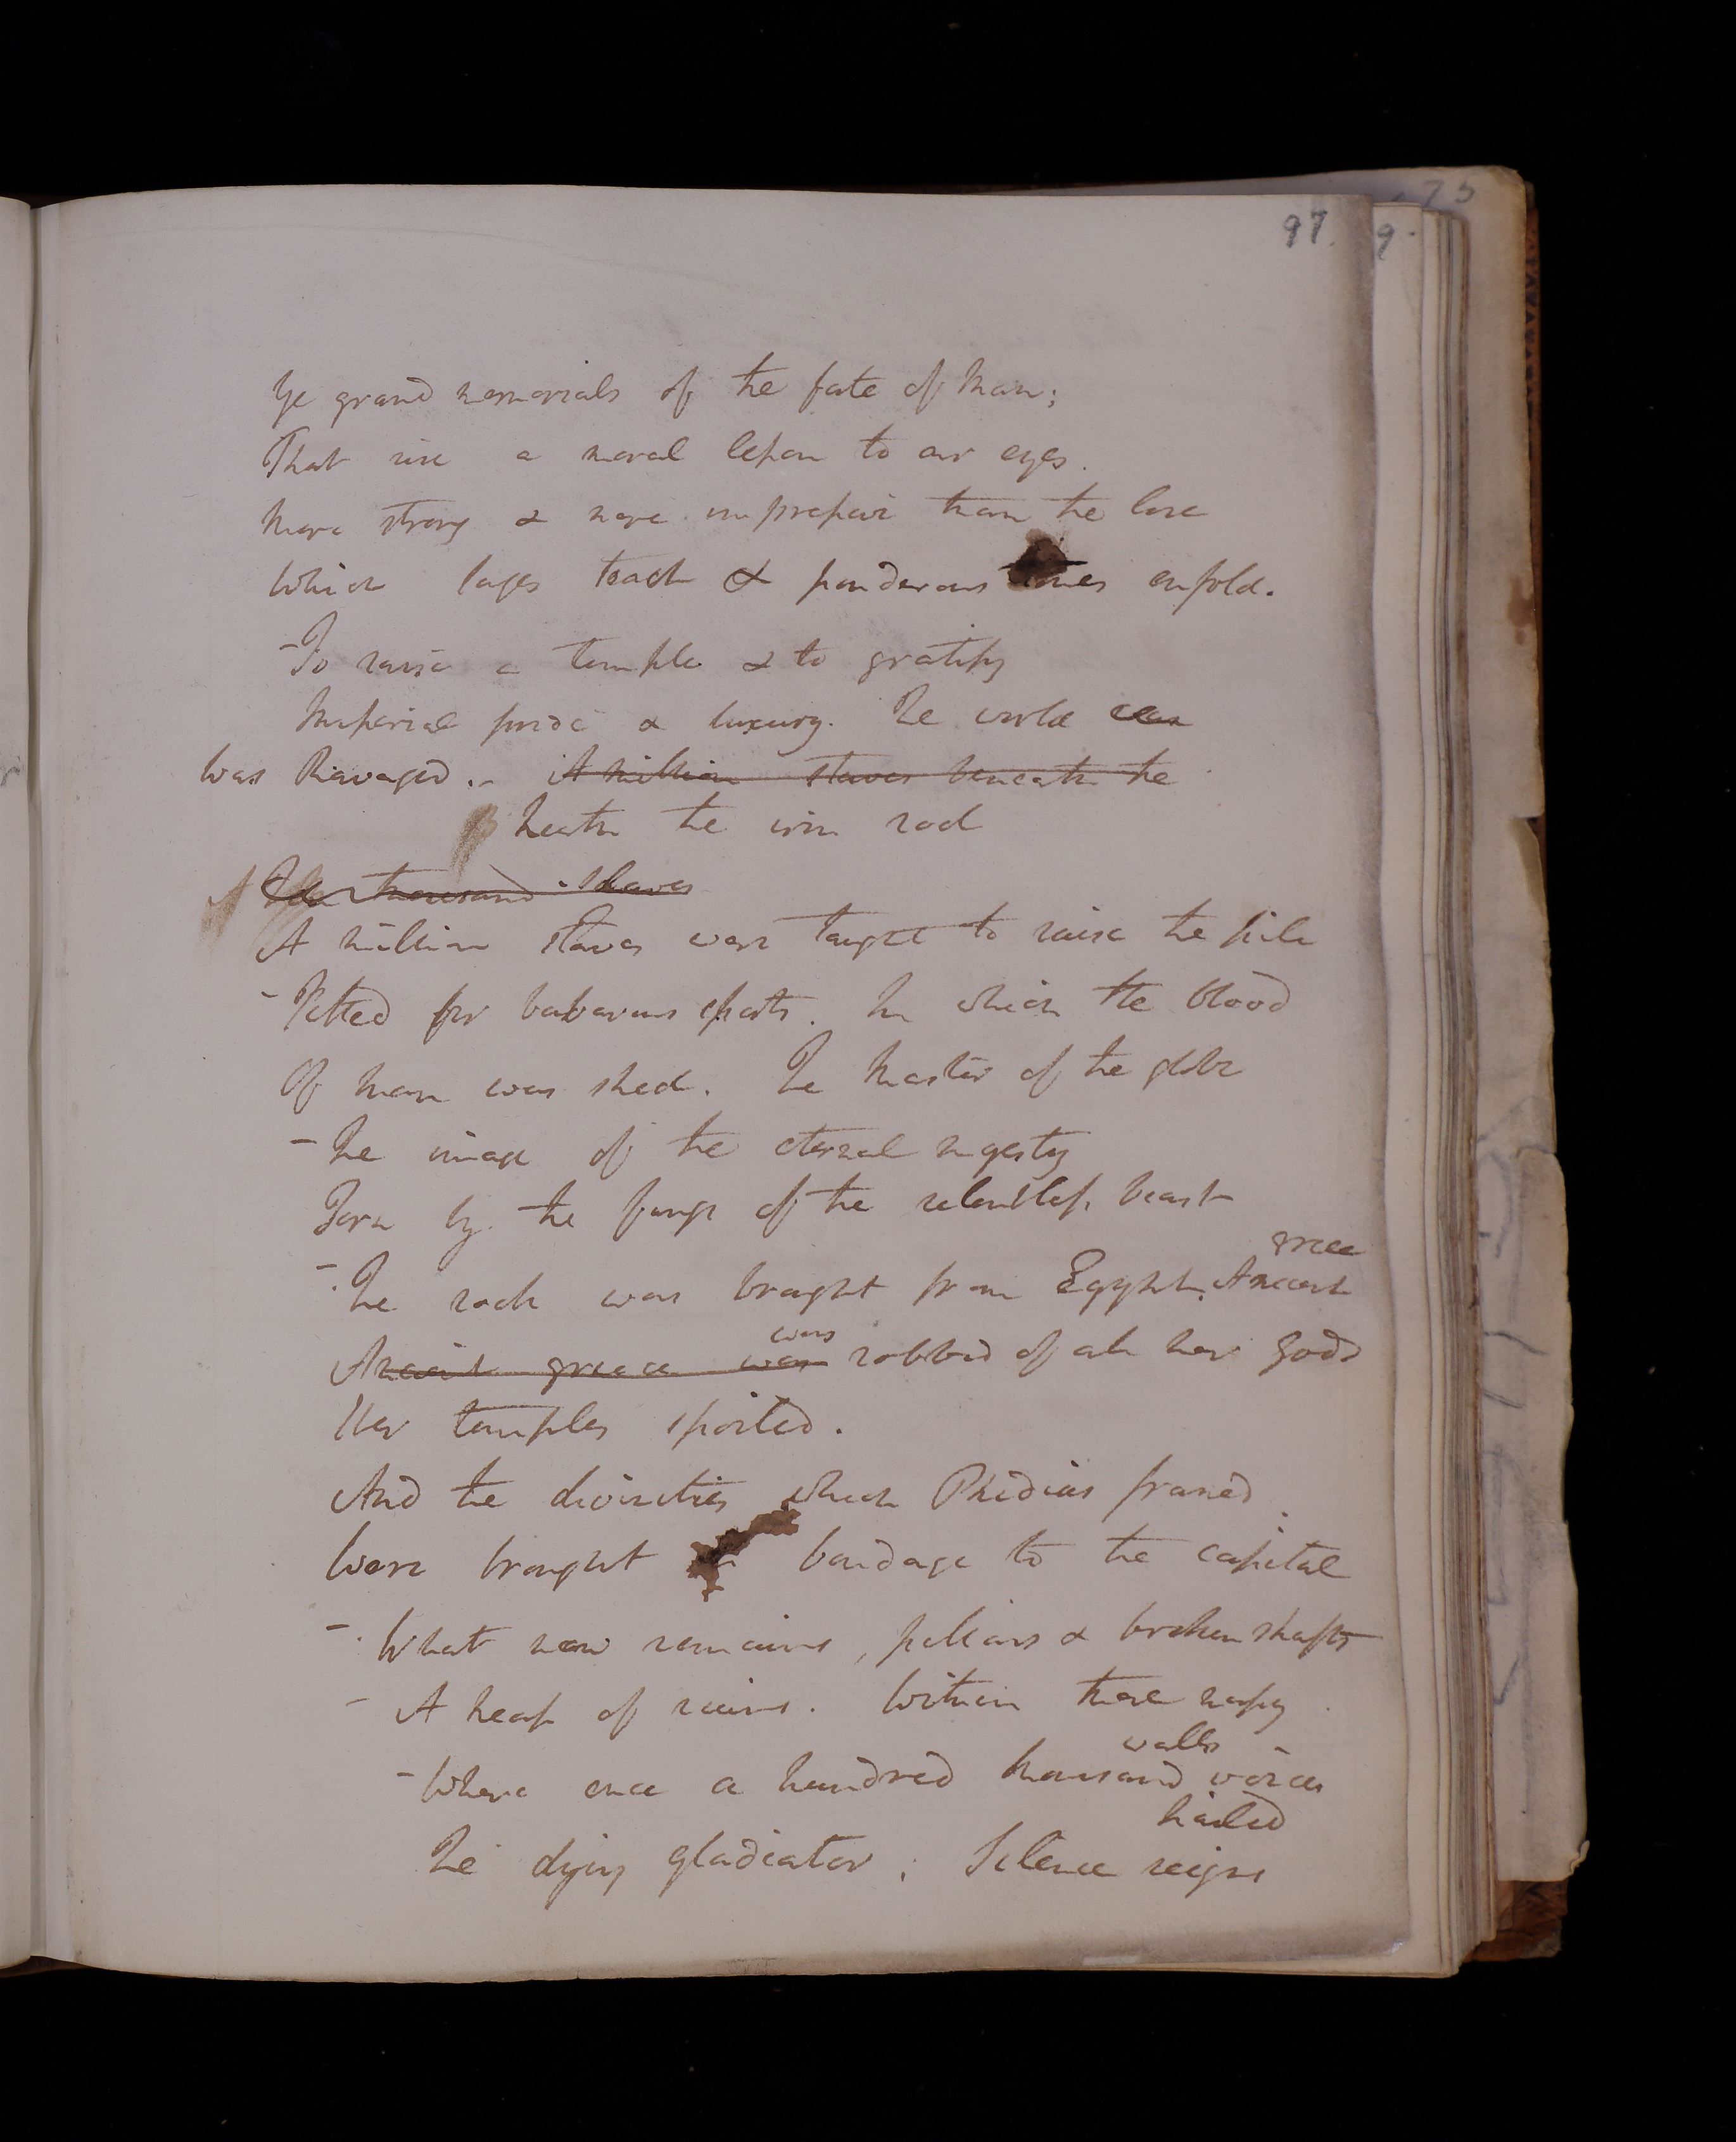 97.
Ye grand memorials of the fate of Man;
That rise a moral lesson to our eyes.
More strong & more impressive than the lore
Which sages teach & ponderous tomes enfold.
-To raise a temple & to gratify
Imperial pride & luxury. The world was
was Ravaged.- A million slaves beneath the
Beneath the iron rod
A Ten thousand slaves
A million slaves were taught to raise the pile
-Fitted for babarous sports. In which the blood
Of man was shed. The Master of the globe
-The image of the eternal majesty
Torn by the fangs of the relentless beast
greece
-The rock was brought from Egypt. Ancient
was
Ancient greece was robbed of all her Gods
Her temples spoiled.
And the divinities which Phidias framed
Were brought in bondage to the capital
-What now remains, pillars & broken shafts
-A heap of ruins. Within these mossy
walls
-Where once a hundred thousand voices
hailed
The dying gladiator; Silence reigns